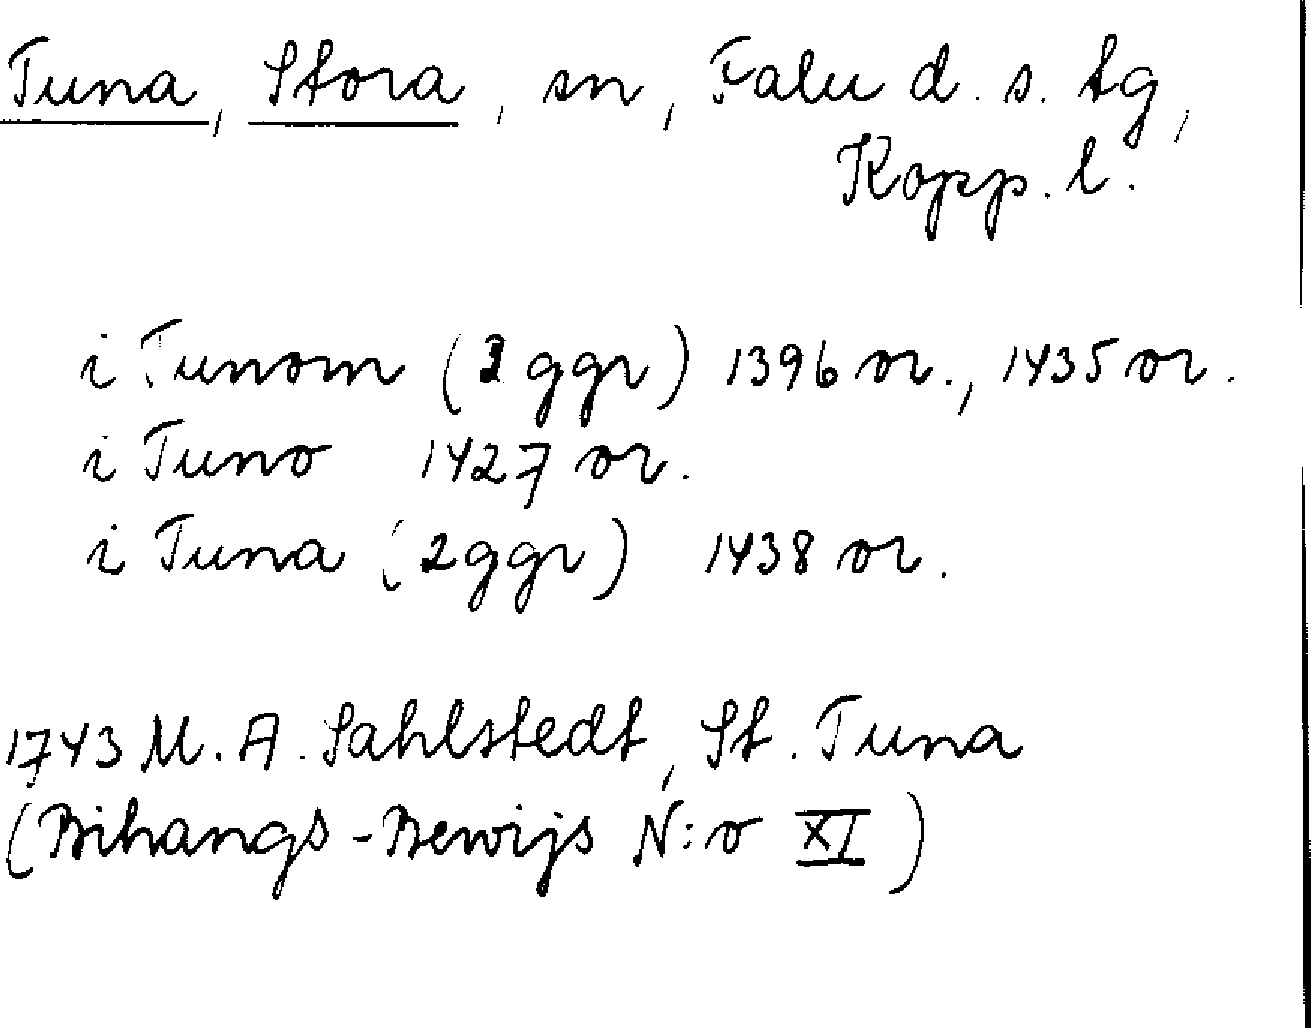 Tuna, Stora, sn, Falu d. s. tg,
Kopp. l.
i Tunom (3 ggr) 1396 or., 1435 or.
i Tuno 1427 or.
i Tuna (2 ggr) 1438 or.
1743 M. A. Sahlstedt, St. Tuna
(Bihangs-Bewijs N:o XI)